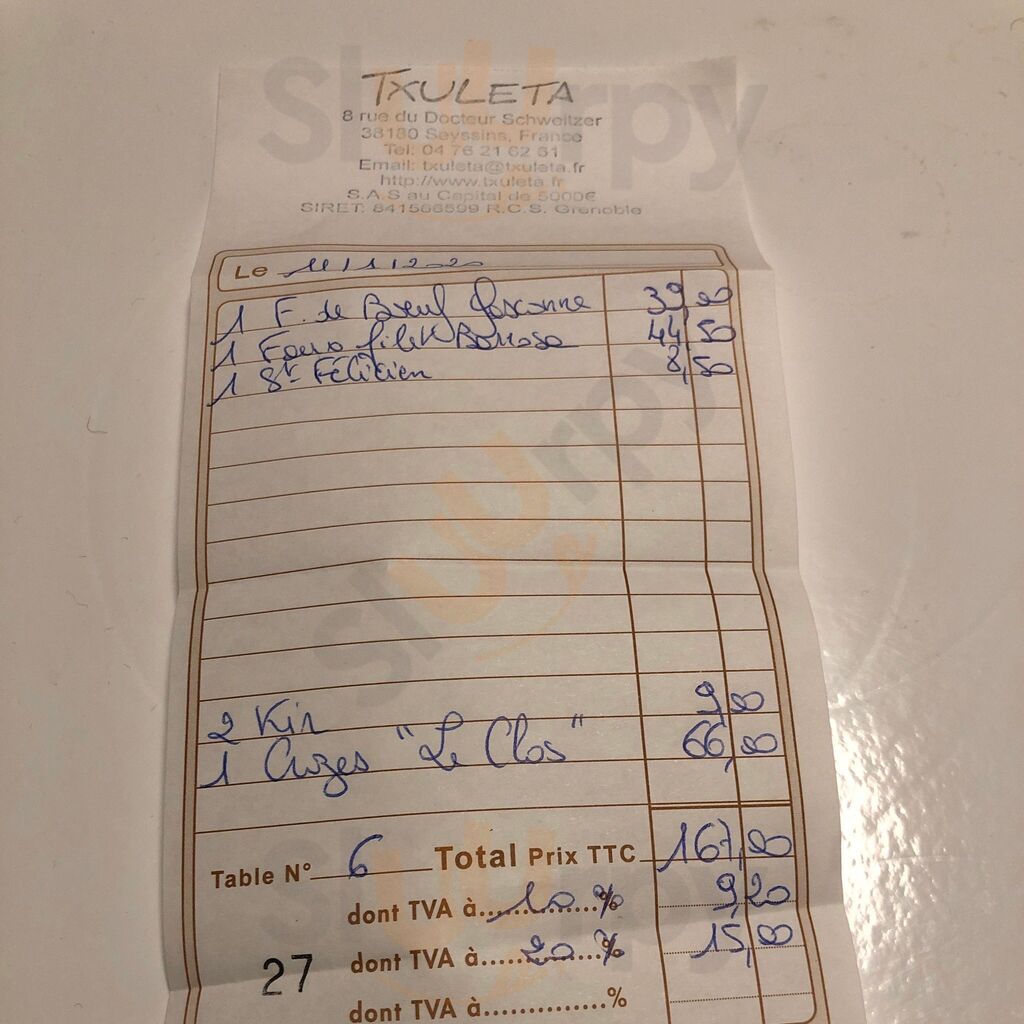 TXULETA
8 rue du Docteur Schweitzer
38180 Seyssins, France
Tel: 04 76 21 62 61
Email: txuleta@txuleta.fr
http://www.txuleta.fr
S.A.S au Capital de 5000€
SIRET: 841566599 R.C.S. Grenoble
Le 11/1/2020
1 F. de Boeuf Gasconne 39,00
1 Faux filet 44,50
1 St Félicien 8,50
2 Kir 9,00
1 Crozes "Le Clos" 66,00
Table N° 6 Total Prix TTC 167,00
dont TVA à 10 % 9,20
dont TVA à 20 % 15,00
27
dont TVA à..............%
Slurpy
Slurpy
Slurpy